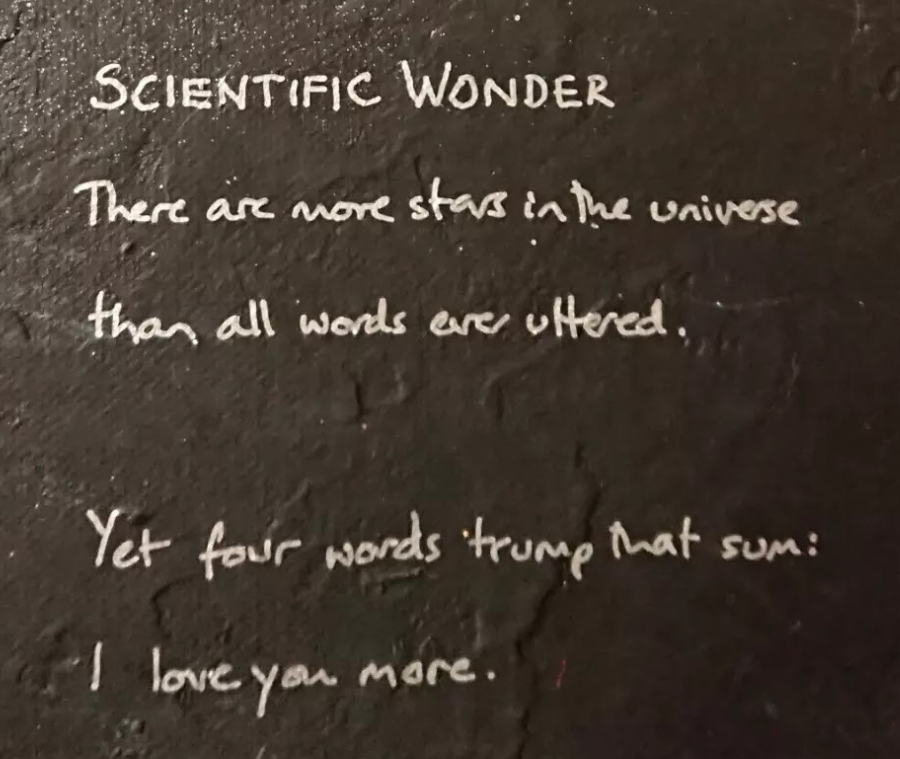 SCIENTIFIC WONDER
There are more stars in the universe
than all words ever uttered.
Yet four words trump that sum:
I love you more.